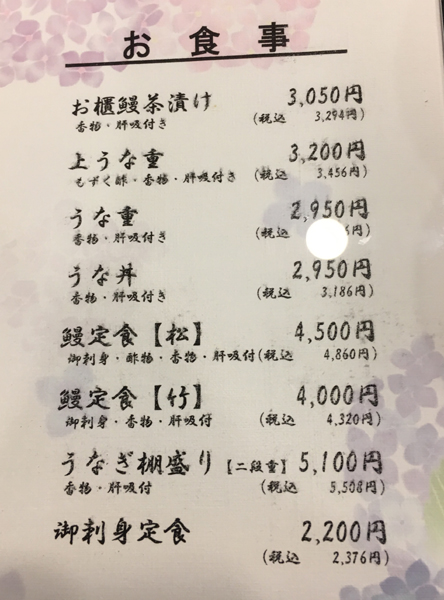 お食事
お櫃鰻茶漬け 3,050円
香物・肝吸付き (税込 3,294円)
上うな重 3,200円
もずく酢・香物・肝吸付き (税込 3,456円)
うな重 2,950円
香物・肝吸付き (税込 6円)
うな丼 2,950円
香物・肝吸付き (税込 3,186円)
鰻定食【松】 4,500円
御刺身・酢物・香物・肝吸付 (税込 4,860円)
鰻定食【竹】 4,000円
御刺身・香物・肝吸付 (税込 4,320円)
うなぎ棚盛り【二段重】 5,100円
香物・肝吸付 (税込 5,508円)
御刺身定食 2,200円
(税込 2,376円)